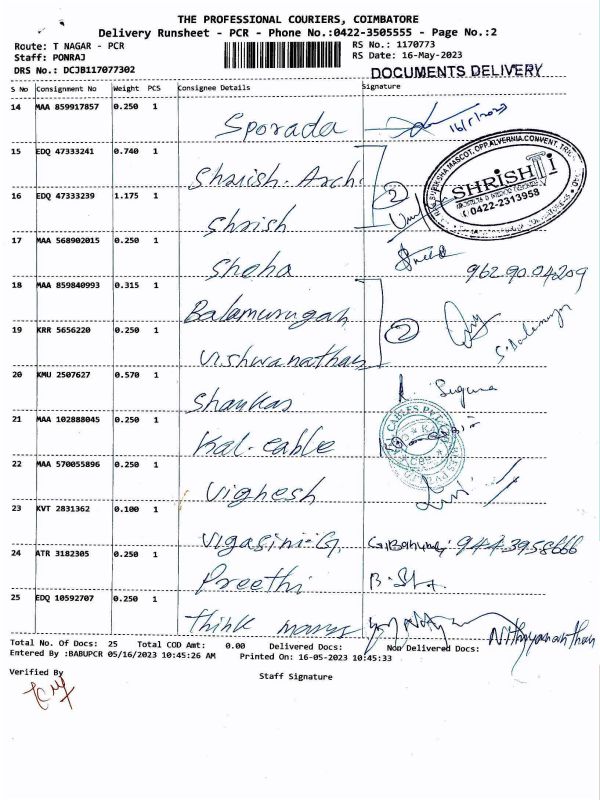 THE PROFESSIONAL COURIERS, COIMBATORE
Delivery Runsheet - PCR - Phone No.:0422-3505555 - Page No.:2
Route: T NAGAR - PCR RS No.: 1170773
Staff: PONRAJ RS Date: 16-May-2023
DRS No.: DCJB117077302 DOCUMENTS DELIVERY
S No Consignment No Weight PCS Consignee Details Signature
14 MAA 859917857 0.250 1 Sporada 16/5/2023
15 EDQ 47333241 0.740 1 Shrish. Archi 2
16 EDQ 47333239 1.175 1 Shrish
SHRISHTI
0422-2313958
17 MAA 568902015 0.250 1 Sheha 9629004209
18 MAA 859840993 0.315 1 Balamurugan
19 KRR 5656220 0.250 1 Vishwanathan 2
20 KMU 2507627 0.570 1 Shankar R. Suguna
21 MAA 102888045 0.250 1 Kal-cable
22 MAA 570055896 0.250 1 Vighesh
23 KVT 2831362 0.100 1 Vigasini-G 9443958666
24 ATR 3182305 0.250 1 Preethi
25 EDQ 10592707 0.250 1 Think Nithyananthan
Total No. Of Docs: 25 Total COD Amt: 0.00 Delivered Docs: Non Delivered Docs:
Entered By :BABUPCR 05/16/2023 10:45:26 AM Printed On: 16-05-2023 10:45:33
Verified By Staff Signature